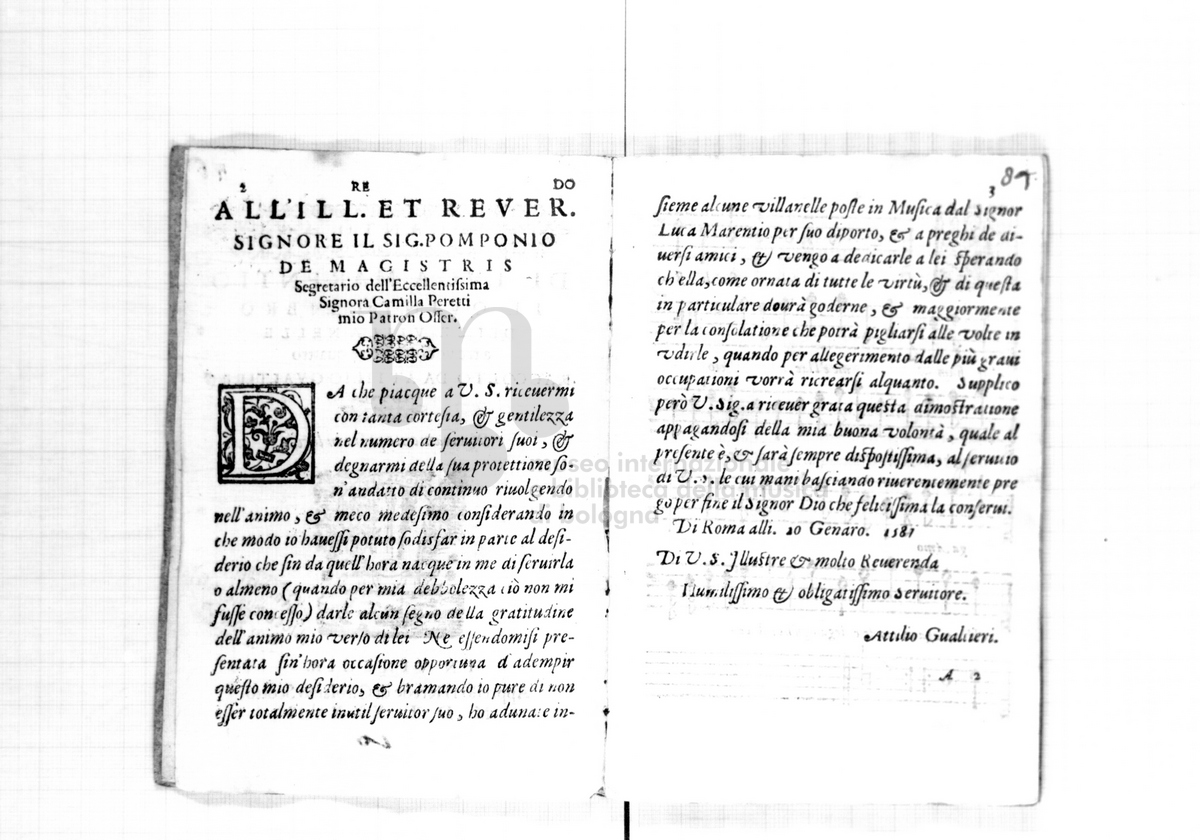 2 RE DO
ALL'ILL. ET REVER.
SIGNORE IL SIG. POMPONIO
DE MAGISTRIS
Segretario dell'Eccellentissima
Signora Camilla Peretti
mio Patron Osser.
DA che piacque a V. S. riceuermi
con tanta cortesia, & gentilezza
nel numero de seruitori suoi, &
degnarmi della sua protettione so-
n'andato di continuo riuolgendo
nell'animo, & meco medesimo considerando in
che modo io hauessi potuto sodisfar in parte al desi-
derio che sin da quell'hora nacque in me di seruirla
o almeno (quando per mia debbolezza ciò non mi
fusse concesso) darle alcun segno della gratitudine
dell'animo mio verso di lei Ne essendomisi pre-
sentata sin'hora occasione opportuna d'adempir
questo mio desiderio, & bramando io pure di non
esser totalmente inutil seruitor suo, ho adunate in-
3
89
sieme alcune villanelle poste in Musica dal Signor
Luca Marentio per suo diporto, & a preghi de di-
uersi amici, & vengo a dedicarle a lei sperando
ch'ella, come ornata di tutte le virtù, & di questa
in particulare dourà goderne, & maggiormente
per la consolatione che potrà pigliarsi alle volte in
vdirle, quando per allegerimento dalle più graui
occupationi vorrà ricrearsi alquanto. Supplico
però V. Sig. a riceuer grata questa dimostratione
appagandosi della mia buona volontà, quale al
presente è, & sarà sempre dispostissima, al seruitio
di V. S. le cui mani basciando riuerentemente pre
go per fine il Signor Dio che felicissima la conserui.
Di Roma alli. 20 Genaro. 1587
Di V. S. Illustre & molto Reuerenda
Humilissimo & obligatissimo Seruitore.
Attilio Gualtieri.
A 2
museo internazionale
e biblioteca della musica
di bologna